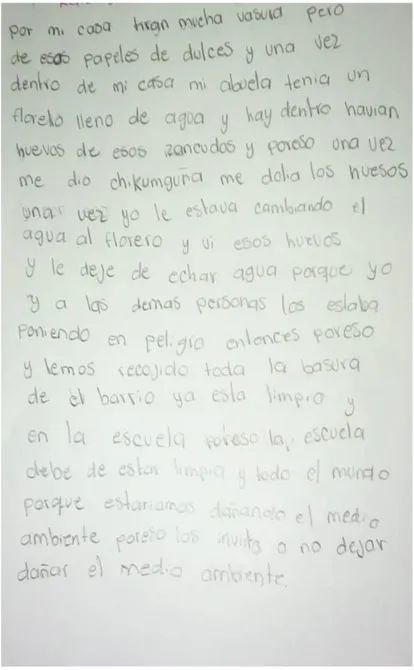 por mi casa tiran mucha vasura pero
de esos papeles de dulces y una vez
dentro de mi casa mi abuela tenia un
florero lleno de agua y hay dentro havian
huevos de esos zancudos y poreso una vez
me dio chikumguña me dolia los huesos
una vez yo le estava cambiando el
agua al florero y vi esos huevos
y le deje de echar agua porque yo
y a las demas personas los estaba
poniendo en peligro entonces poreso
y lemos recojido toda la basura
de el barrio ya esta limpio y
en la escuela poreso la escuela
debe de estar limpia y todo el mundo
porque estariamos dañando el medio
ambiente poreso los invito a no dejar
dañar el medio ambiente.